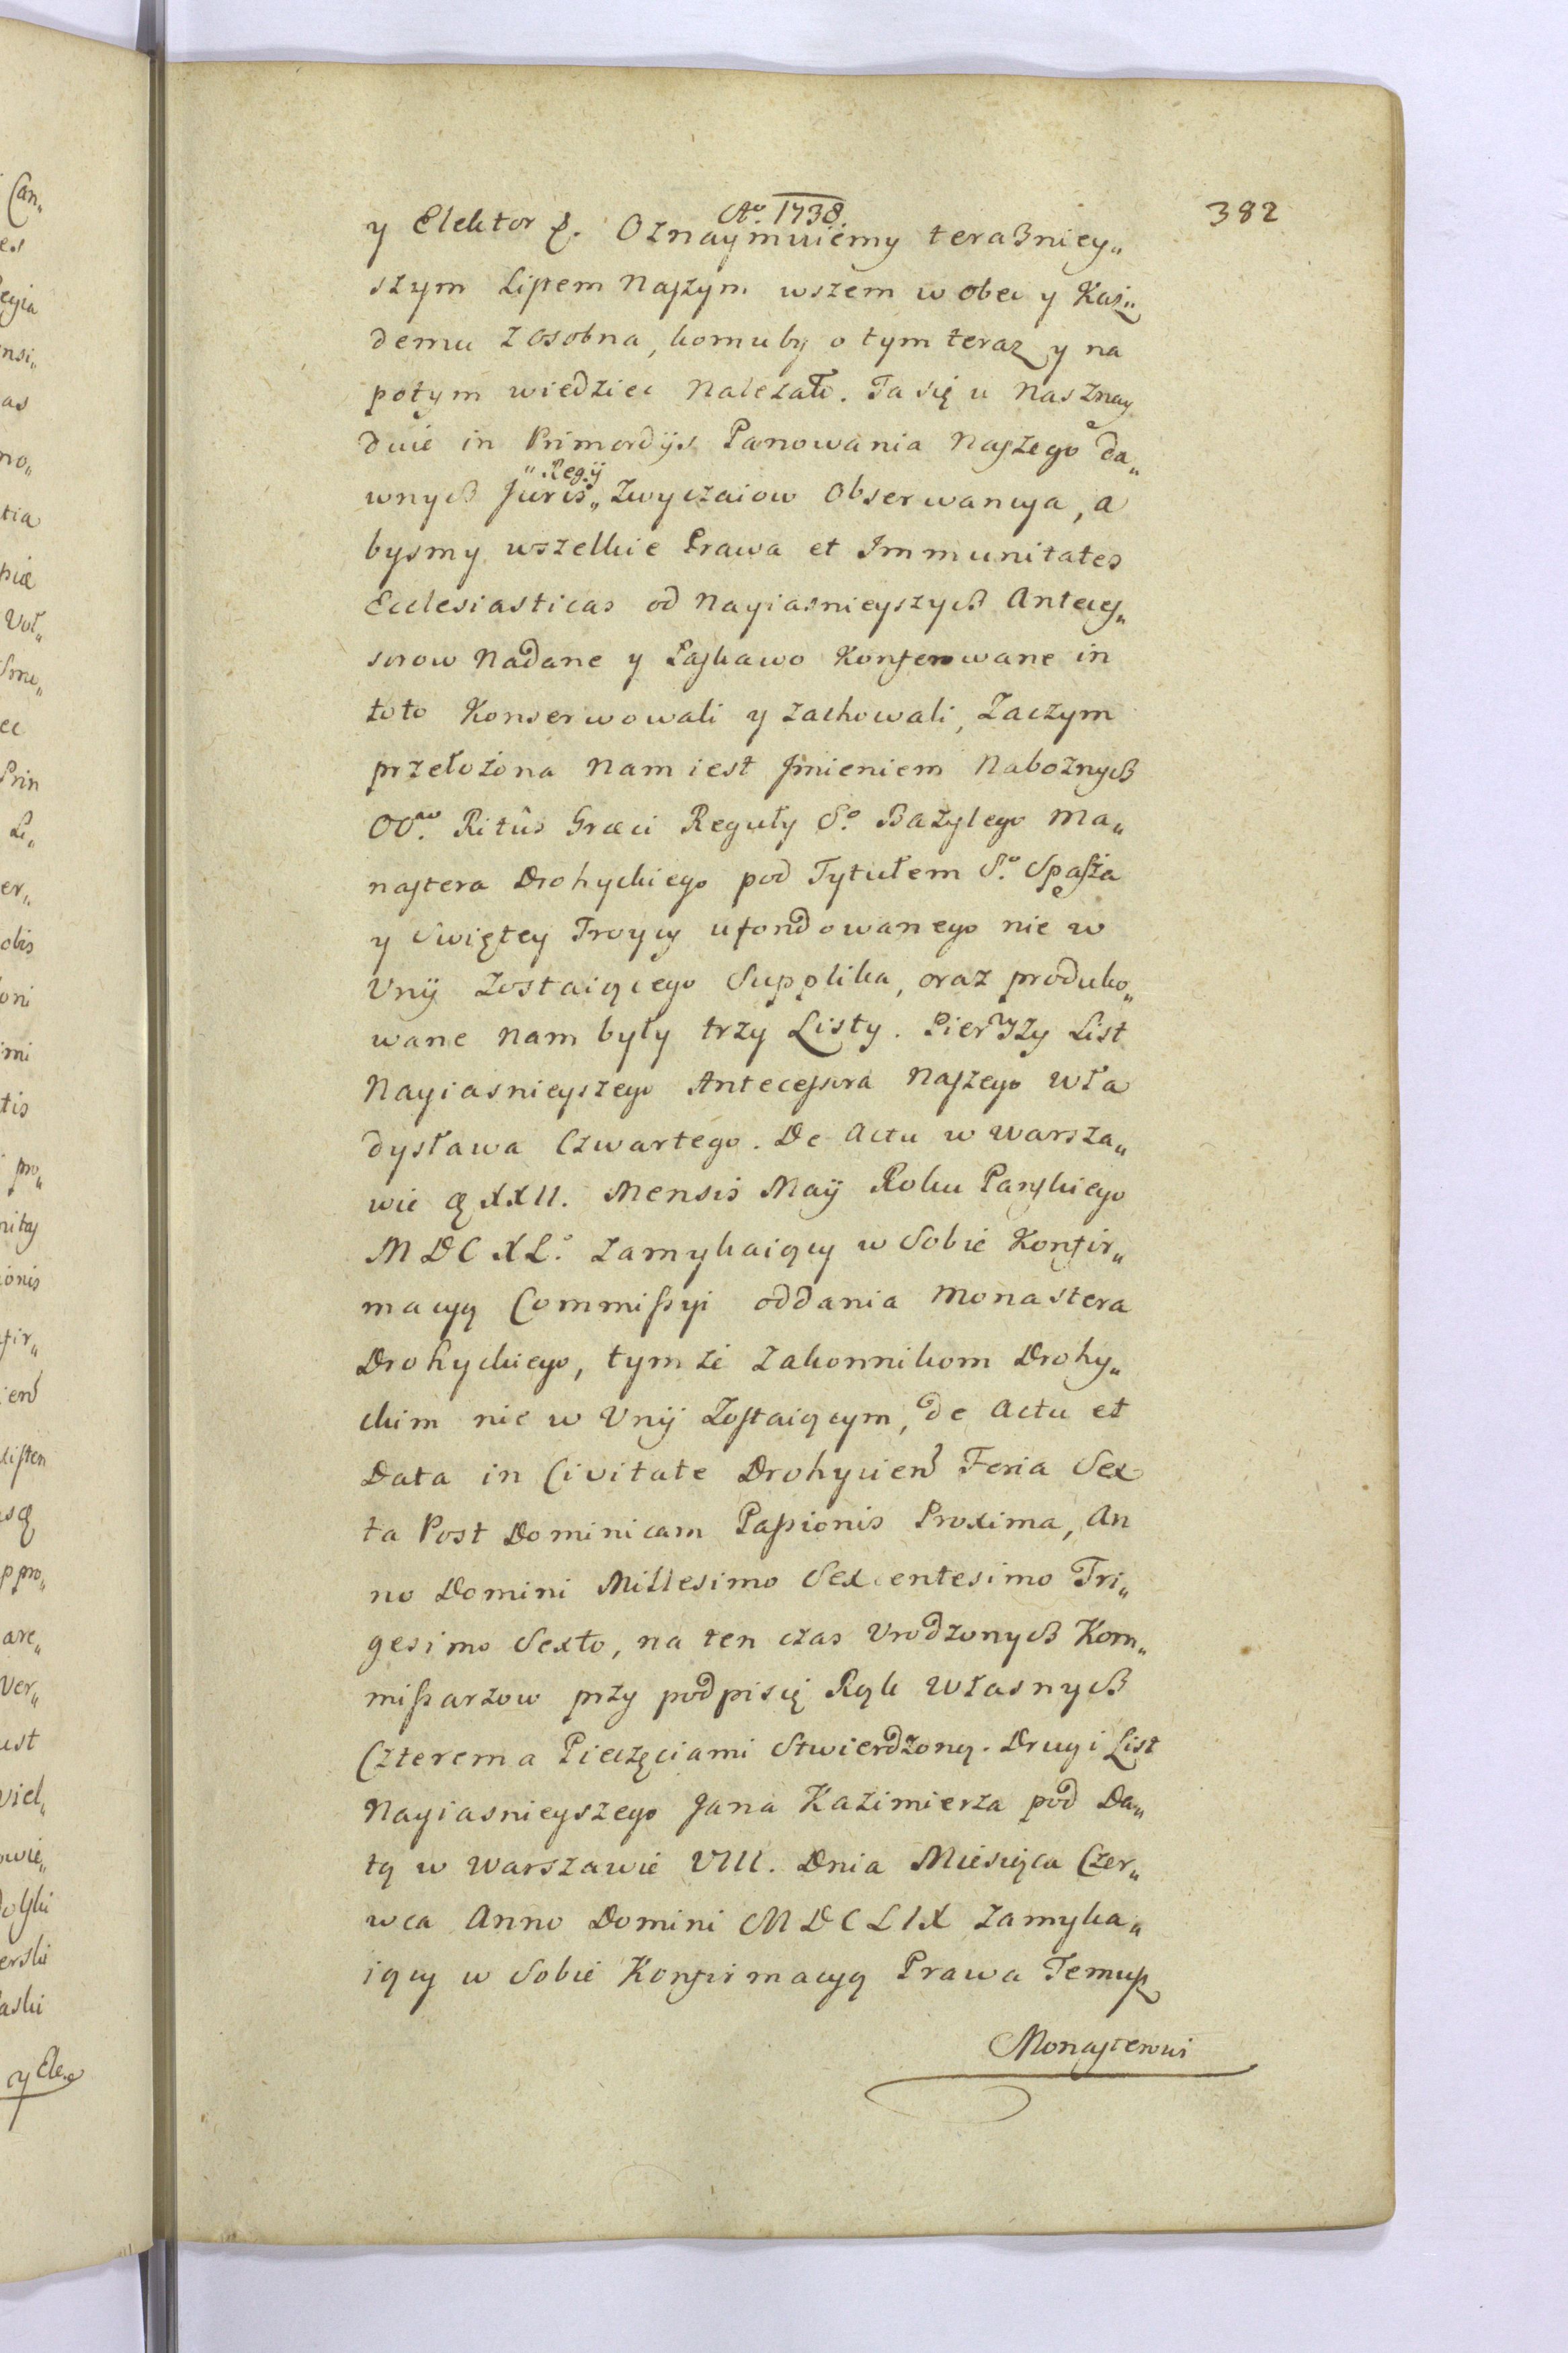 Aº. 1738.
382
y Elektor &. Oznaymuiemy teraszniey„
szym Listem Naszym wszem w obec y Kaz„
demu zosobna, komuby o tym teraz y na
potym wiedziec Nalezało. Ta się u Nas znay
duie in Primordijs Panowania Naszego da„
„Regij
wnych Juris„ Zwyczaiow Obserwancya, a
bysmy wszelkie Prawa et Immunitates
Ecclesiasticas od Nayiasnieyszych Antecej„
sorow Nadane y Łaskawo Konferowane in
toto Konserwowali y zachowali, Zaczym
przełożona Nam iest Jmieniem Nabożnych
OO. Ritûs Græci Reguły Sº Bazylego Ma„
nastera Drohyckiego pod Tytułem Sº. Spassa
y Swiętey Troycy ufondowanego nie w
Vnij Zostaiącego Supplika, oraz produko„
wane Nam były trzy Listy. Pierwszy List
Nayiasnieyszego Antecessora Naszego Wła
dysława Czwartego. De Actu w Warsza„
wie XXII. Mensis Maij Roku Panskiego
MDCXL.º zamykaiący w Sobie Konfir„
macyą Commissyi oddania Monastera
Drohyckiego, tymże Zakonnikom Drohy„
ckim nie w Vnij Zostaiącym, de Actu et
Data in Civitate Drohycien Feria Sex
ta Post Dominicam Passionis Proxima, An
no Domini Millesimo Sexcentesimo Tri„
gesimo Sexto, na ten czas Vrodzonych Kom„
missarzow przy podpisię Rąk Własnych
Czterema Pieczęciami Stwierdzoną. Drugi List
Nayiasnieyszego Jana Kazimierza pod Da„
tą w Warszawie VIII. Dnia Miesiąca Czer„
wca Anno Domini MDCLIX zamyka„
iący w Sobie Konfirmacyą Prawa Temusz
Monasterowi